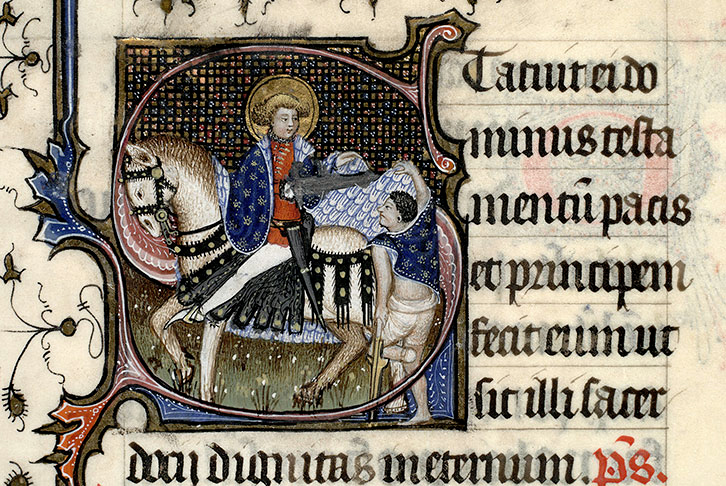 Statuit ei do
minus testa
mentū pacis
et principem
fecit eum ut
sit illi sacer
docij dignitas in eternum. p̄s.